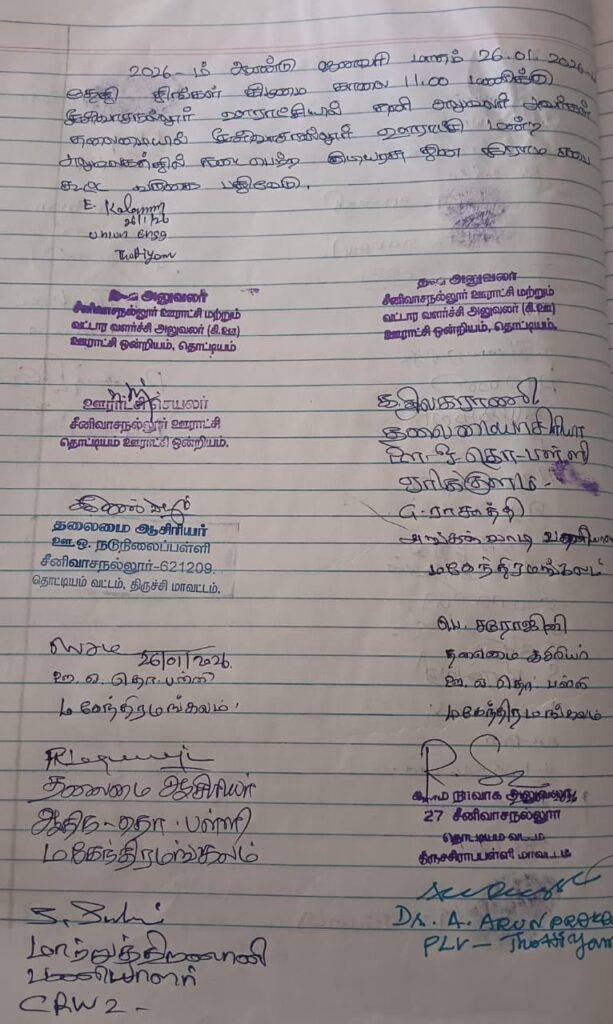 2026-ம் ஆண்டு ஜனவரி மாதம் 26.01.2026-ம்
தேதி திங்கள் கிழமை காலை 11.00 மணிக்கு
சீனிவாசநல்லூர் ஊராட்சியில் தனி அலுவலர் அவர்கள்
தலைமையில் சீனிவாசநல்லூர் ஊராட்சி மன்ற
அலுவலகத்தில் நடைபெற்ற குடியரசு தின கிராம சபை
கூட்ட வருகை பதிவேடு.
E.
26/1/26
Union Engg
Thottiyam
அனுவலர்
சீனிவாசநல்லூர் ஊராட்சி மற்றும்
வட்டார வளர்ச்சி அலுவலர் (கி.ஊ)
ஊராட்சி ஒன்றியம், தொட்டியம்
அனுவலர்
சீனிவாசநல்லூர் ஊராட்சி மற்றும்
வட்டார வளர்ச்சி அலுவலர் (கி.ஊ)
ஊராட்சி ஒன்றியம், தொட்டியம்
ஊராட்சி செயலர்
சீனிவாசநல்லூர் ஊராட்சி
தொட்டியம் ஊராட்சி ஒன்றியம்.
க.திலகராணி
தலைமையாசிரியர்
தொ-பள்ளி
G. ராசாத்தி
அங்கன்வாடி பணியாளர்
மகேந்திரமங்கலம்
தலைமை ஆசிரியர்
ஊ.ஒ. நடுநிலைப்பள்ளி
சீனிவாசநல்லூர்-621209.
தொட்டியம் வட்டம், திருச்சி மாவட்டம்.
26/01/2026
ஊ. ஒ. தொ. பள்ளி
மகேந்திரமங்கலம்
பெ. சரோஜினி
தலைமை ஆசிரியர்
ஊ. ஒ. தொ. பள்ளி
மகேந்திரமங்கலம்
தலைமை ஆசிரியர்
ஆதிந-தொ. பள்ளி
மகேந்திரமங்கலம்
கிராம நிர்வாக அலுவலர்
27 சீனிவாசநல்லூர்
தொட்டியம் வட்டம்
திருச்சிராப்பள்ளி மாவட்டம்
Dr. A. ARUN
PLV - Thottiyam
மாற்றுத்திறனாளி
பணியாளர்
CRW 2 -